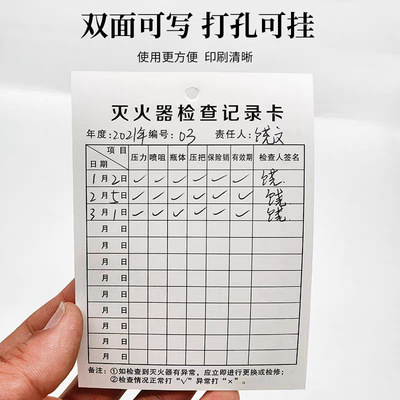 双面可写 打孔可挂
使用更方便 印刷清晰
灭火器检查记录卡
年度:2021年 编号: 03 责任人: 饶文
项目 日期 压力 喷咀 瓶体 压把 保险销 有效期 检查人签名
1月2日 ✓ ✓ ✓ ✓ ✓ ✓ 饶
2月5日 ✓ ✓ ✓ ✓ ✓ ✓ 饶
3月1日 ✓ ✓ ✓ ✓ ✓ ✓ 饶
月 日
月 日
月 日
月 日
月 日
月 日
月 日
月 日
备注:①如检查到灭火器有异常,应立即进行更换或检修;
②检查情况正常打“√”异常打“×”。